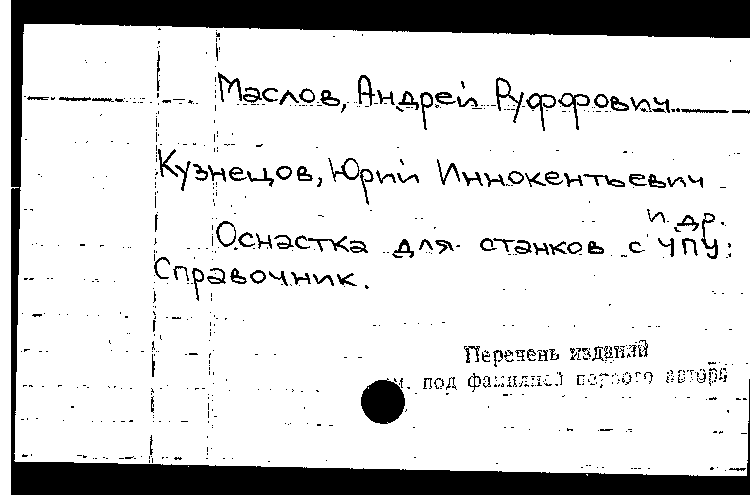 Маслов, Андрей Руффович
Кузнецов, Юрий Иннокентьевич
и др.
Оснастка для станков с ЧПУ:
Справочник.
Перечень изданий
см. под фамилией первого автора